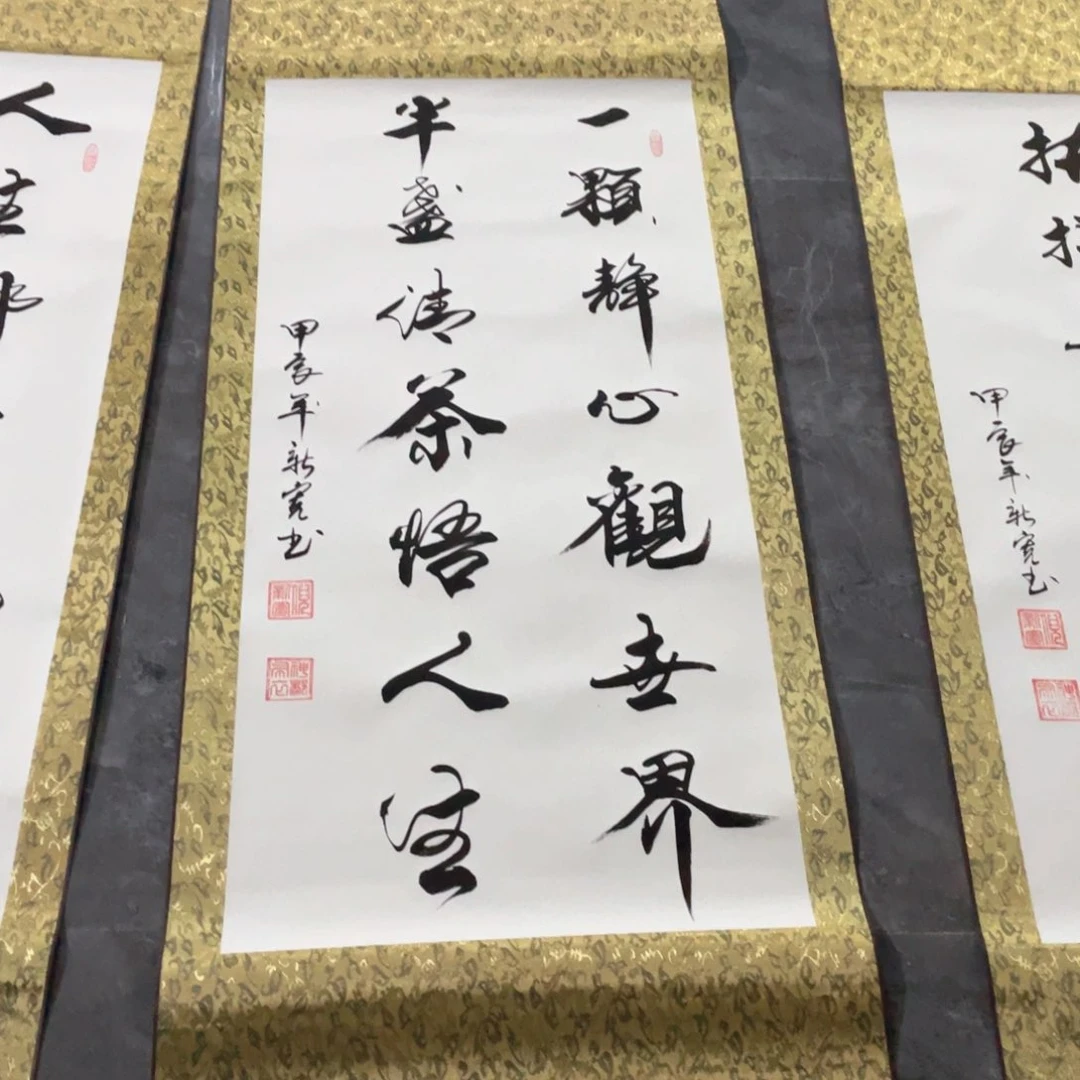 一顆靜心觀世界
半盞清茶悟人生
甲辰年新寬书
甲辰年新寬书
人生